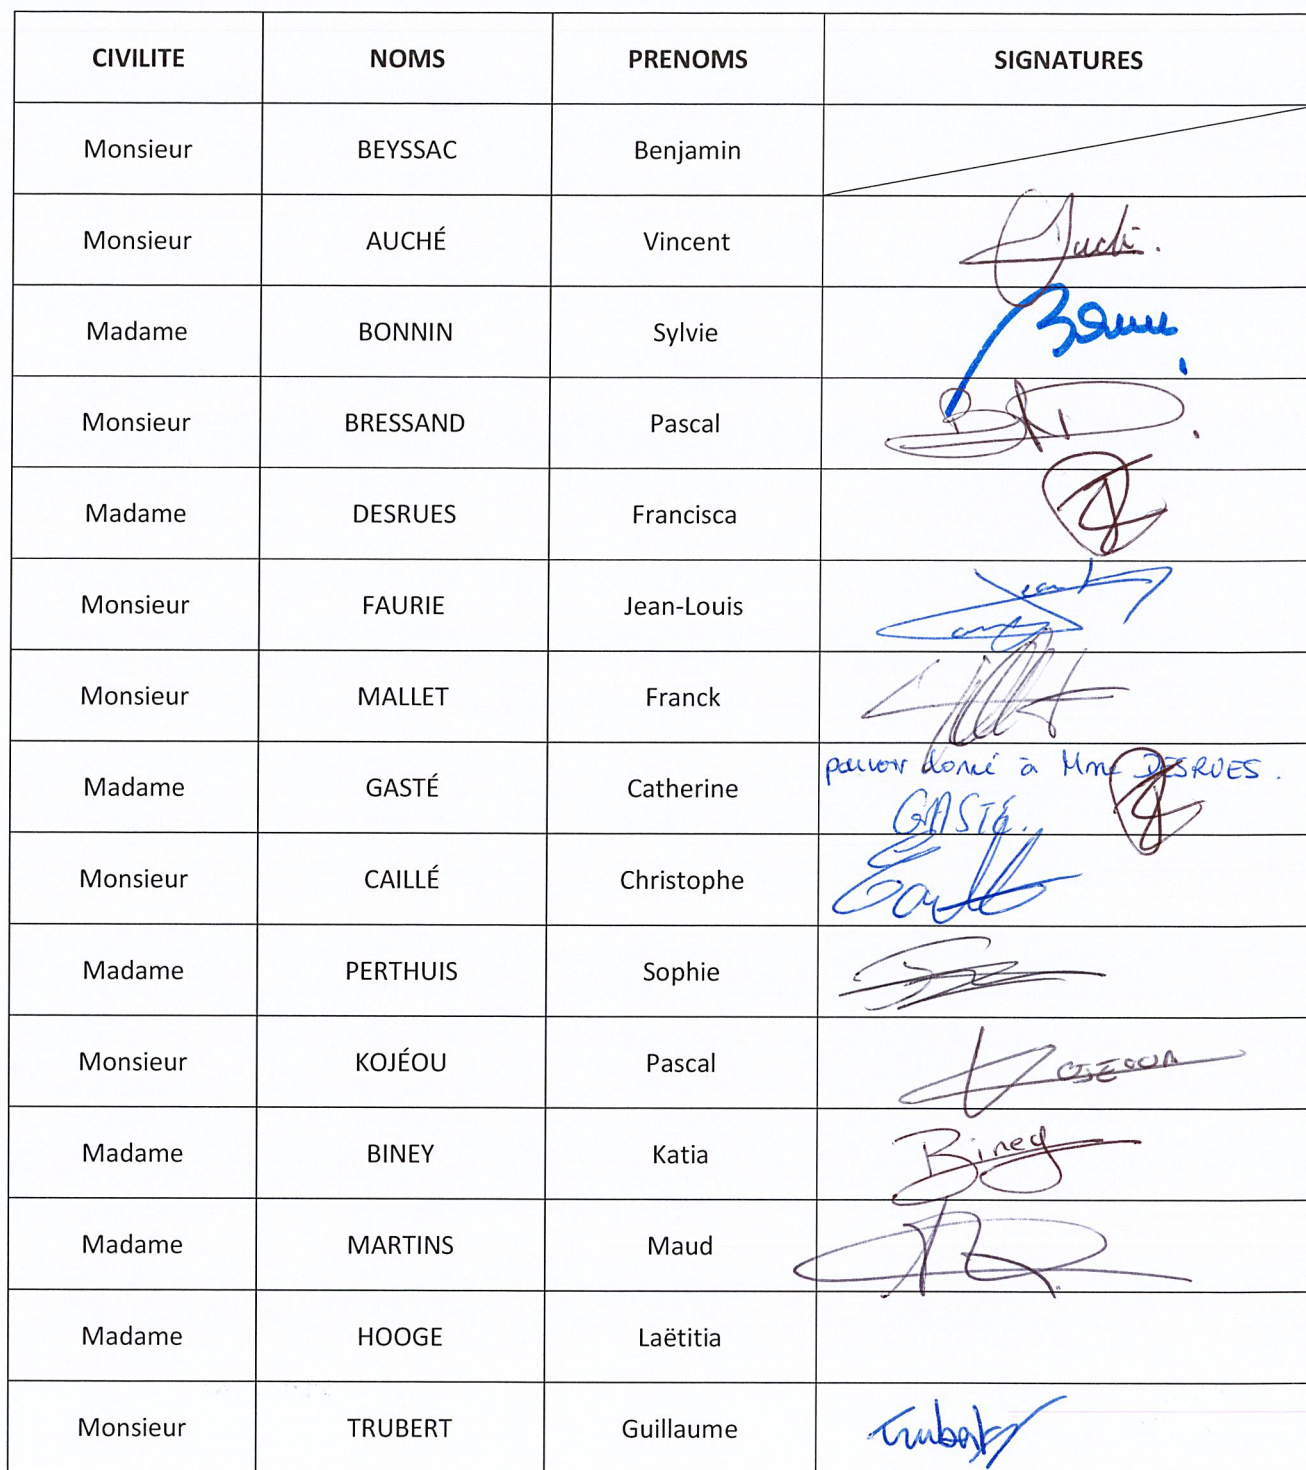 CIVILITE NOMS PRENOMS SIGNATURES
Monsieur BEYSSAC Benjamin
Monsieur AUCHÉ Vincent
Madame BONNIN Sylvie
Monsieur BRESSAND Pascal
Madame DESRUES Francisca
Monsieur FAURIE Jean-Louis
Monsieur MALLET Franck
pouvoir donné à Mme DESRUES.
Madame GASTÉ Catherine
GASTÉ.
Monsieur CAILLÉ Christophe
Madame PERTHUIS Sophie
Monsieur KOJÉOU Pascal
Madame BINEY Katia Biney
Madame MARTINS Maud
Madame HOOGE Laëtitia
Monsieur TRUBERT Guillaume Trubert